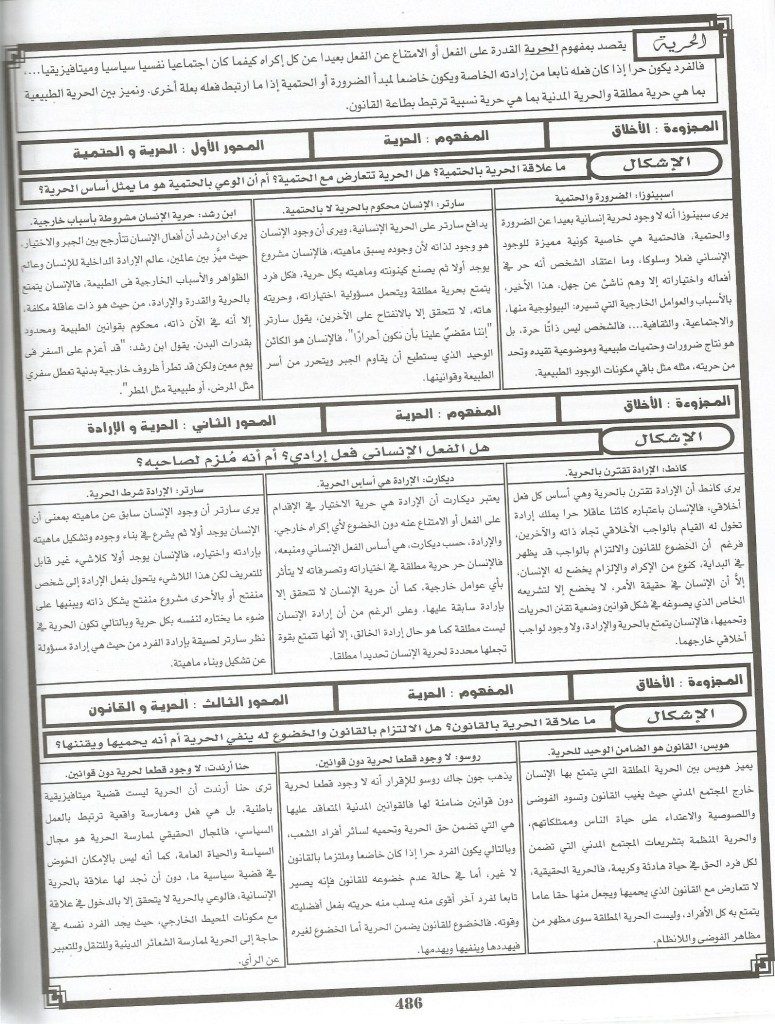 الحرية
يقصد بمفهوم الحرية القدرة على الفعل أو الامتناع عن الفعل بعيدا عن كل إكراه كيفما كان اجتماعيا نفسيا سياسيا وميتافيزيقيا....،
فالفرد يكون حرا إذا كان فعله نابعا من إرادته الخاصة ويكون خاضعا لمبدأ الضرورة أو الحتمية إذا ما ارتبط فعله بعلة أخرى. ونميز بين الحرية الطبيعية
بما هي حرية مطلقة والحرية المدنية بما هي حرية نسبية ترتبط بطاعة القانون.
المجزوءة : الأخلاق
المفهوم : الحرية
المحور الأول : الحرية و الحتمية
الإشكال
ما علاقة الحرية بالحتمية؟ هل الحرية تتعارض مع الحتمية؟ أم أن الوعي بالحتمية هو ما يمثل أساس الحرية؟
اسبينوزا: الضرورة والحتمية
يرى سبينوزا أنه لا وجود لحرية إنسانية بعيدا عن الضرورة
والحتمية. فالحتمية هي خاصية كونية مميزة للوجود
الإنساني فعلا وسلوكا، وما اعتقاد الشخص أنه حر في
أفعاله واختياراته إلا وهم ناشئ عن جهل، هذا الأخير،
بالأسباب والعوامل الخارجية التي تسيره: البيولوجية منها،
والاجتماعية، والثقافية.... فالشخص ليس ذاتًا حرة، بل
هو نتاج ضرورات وحتميات طبيعية وموضوعية تقيده وتحد
من حريته، مثله مثل باقي مكونات الوجود الطبيعية.
سارتر: الإنسان محكوم بالحرية لا بالحتمية.
يدافع سارتر على الحرية الإنسانية، ويرى أن وجود الإنسان
هو وجود لذاته لأن وجوده يسبق ماهيته، فالإنسان مشروع
يوجد أولا ثم يصنع كينونته وماهيته بكل حرية، فكل فرد
يتمتع بحرية مطلقة ويتحمل مسؤولية اختياراته، وحريته
هاته، لا تتحقق إلا بالانفتاح على الآخرين، يقول سارتر
"إننا مقضيٌ علينا بأن نكون أحرارًا"، فالإنسان هو الكائن
الوحيد الذي يستطيع أن يقاوم الجبر ويتحرر من أسر
الطبيعة وقوانينها.
ابن رشد: حرية الإنسان مشروطة بأسباب خارجية.
يرى ابن رشد أن أفعال الإنسان تتأرجح بين الجبر والاختيار،
حيث ميز بين عالمين، عالم الإرادة الداخلية للإنسان وعالم
الظواهر والأسباب الخارجية في الطبيعة، فالإنسان يتمتع
بالحرية والقدرة والإرادة، من حيث هو ذات عاقلة مكلفة،
إلا أنه في الآن ذاته، محكوم بقوانين الطبيعة ومحدود
بقدرات البدن، يقول ابن رشد: "قد أعزم على السفر في
يوم معين ولكن قد تطرأ ظروف خارجية بدنية تعطل سفري
مثل المرض، أو طبيعية مثل المطر".
المجزوءة : الأخلاق
المفهوم : الحرية
المحور الثاني : الحرية و الإرادة
الإشكال
هل الفعل الإنساني فعل إرادي؟ أم أنه مُلزم لصاحبه؟
كانط: الإرادة تقترن بالحرية.
يرى كانط أن الإرادة تقترن بالحرية وهي أساس كل فعل
أخلاقي، فالإنسان باعتباره كائنا عاقلا حرا يملك إرادة
تخول له القيام بالواجب الأخلاقي تجاه ذاته والآخرين،
فرغم أن الخضوع للقانون والالتزام بالواجب قد يظهر
في البداية، كنوع من الإكراه والإلزام يخضع له الإنسان،
إلاَّ أن الإنسان في حقيقة الأمر، لا يخضع إلا لتشريعه
الخاص الذي يصوغه في شكل قوانين وضعية تقنن الحريات
وتحميها، فالإنسان يتمتع بالحرية والإرادة، ولا وجود لواجب
أخلاقي خارجهما.
ديكارت: الإرادة هي أساس الحرية.
يعتبر ديكارت أن الإرادة هي حرية الاختيار في الإقدام
على الفعل أو الامتناع عنه دون الخضوع لأي إكراه خارجي.
والإرادة، حسب ديكارت، هي أساس الفعل الإنساني ومنبعه،
فالإنسان حر حرية مطلقة في اختياراته وتصرفاته لا يتأثر
بأي عوامل خارجية. كما أن حرية الإنسان لا تتحقق إلا
بإرادة سابقة عليها. وعلى الرغم من أن إرادة الإنسان
ليست مطلقة كما هو حال إرادة الخالق، إلا أنها تتمتع بقوة
تجعلها محددة لحرية الإنسان تحديدا مطلقا.
سارتر: الإرادة شرط الحرية.
يرى سارتر أن وجود الإنسان سابق عن ماهيته بمعنى أن
الإنسان يوجد أولا ثم يشرع في بناء وجوده وتشكيل ماهيته
بإرادته واختياره، فالإنسان يوجد أولا كلاشيء غير قابل
للتعريف لكن هذا اللاشيء يتحول بفعل الإرادة إلى شخص
منفتح أو بالأحرى مشروع منفتح يشكل ذاته ويبنيها على
ضوء ما يختاره لنفسه بكل حرية وبالتالي تكون الحرية في
نظر سارتر لصيقة بإرادة الفرد من حيث هي إرادة مسؤولة
عن تشكيل وبناء ماهيته.
المجزوءة : الأخلاق
المفهوم : الحرية
المحور الثالث : الحرية و القانون
الإشكال
ما علاقة الحرية بالقانون؟ هل الالتزام بالقانون والخضوع له ينفي الحرية أم أنه يحميها ويقننها؟
هوبس: القانون هو الضامن الوحيد للحرية.
يميز هوبس بين الحرية المطلقة التي يتمتع بها الإنسان
خارج المجتمع المدني حيث يغيب القانون وتسود الفوضى
واللصوصية والاعتداء على حياة الناس وممتلكاتهم،
والحرية المنظمة بتشريعات المجتمع المدني التي تضمن
لكل فرد الحق في حياة هادئة وكريمة. فالحرية الحقيقية،
لا تتعارض مع القانون الذي يحميها ويجعل منها حقا عاما
يتمتع به كل الأفراد، وليست الحرية المطلقة سوى مظهر من
مظاهر الفوضى واللانظام.
روسو: لا وجود قطعا لحرية دون قوانين.
يذهب جون جاك روسو للإقرار أنه لا وجود قطعا لحرية
دون قوانين ضامنة لها فالقوانين المدنية المتعاقد عليها
هي التي تضمن حق الحرية وتحميه لسائر أفراد الشعب،
وبالتالي يكون الفرد حرا إذا كان خاضعا وملتزما بالقانون
لا غير، أما في حالة عدم خضوعه للقانون فإنه يصير
تابعا لفرد آخر أقوى منه يسلب منه حريته بفعل أفضليته
وقوته. فالخضوع للقانون يضمن الحرية أما الخضوع لغيره
فيهددها وينفيها ويهدمها.
حنا أرندت: لا وجود قطعا لحرية دون قوانين.
ترى حنا أرندت أن الحرية ليست قضية ميتافيزيقية
باطنية، بل هي فعل وممارسة واقعية ترتبط بالعمل
السياسي، فالمجال الحقيقي لممارسة الحرية هو مجال
السياسة والحياة العامة، كما أنه ليس بالإمكان الخوض
في قضية سياسية ما، دون أن نجد لها علاقة بالحرية
الإنسانية، فالوعي بالحرية لا يتحقق إلا بالدخول في علاقة
مع مكونات المحيط الخارجي، حيث يجد الفرد نفسه في
حاجة إلى الحرية لممارسة الشعائر الدينية وللتنقل وللتعبير
عن الرأي.
486